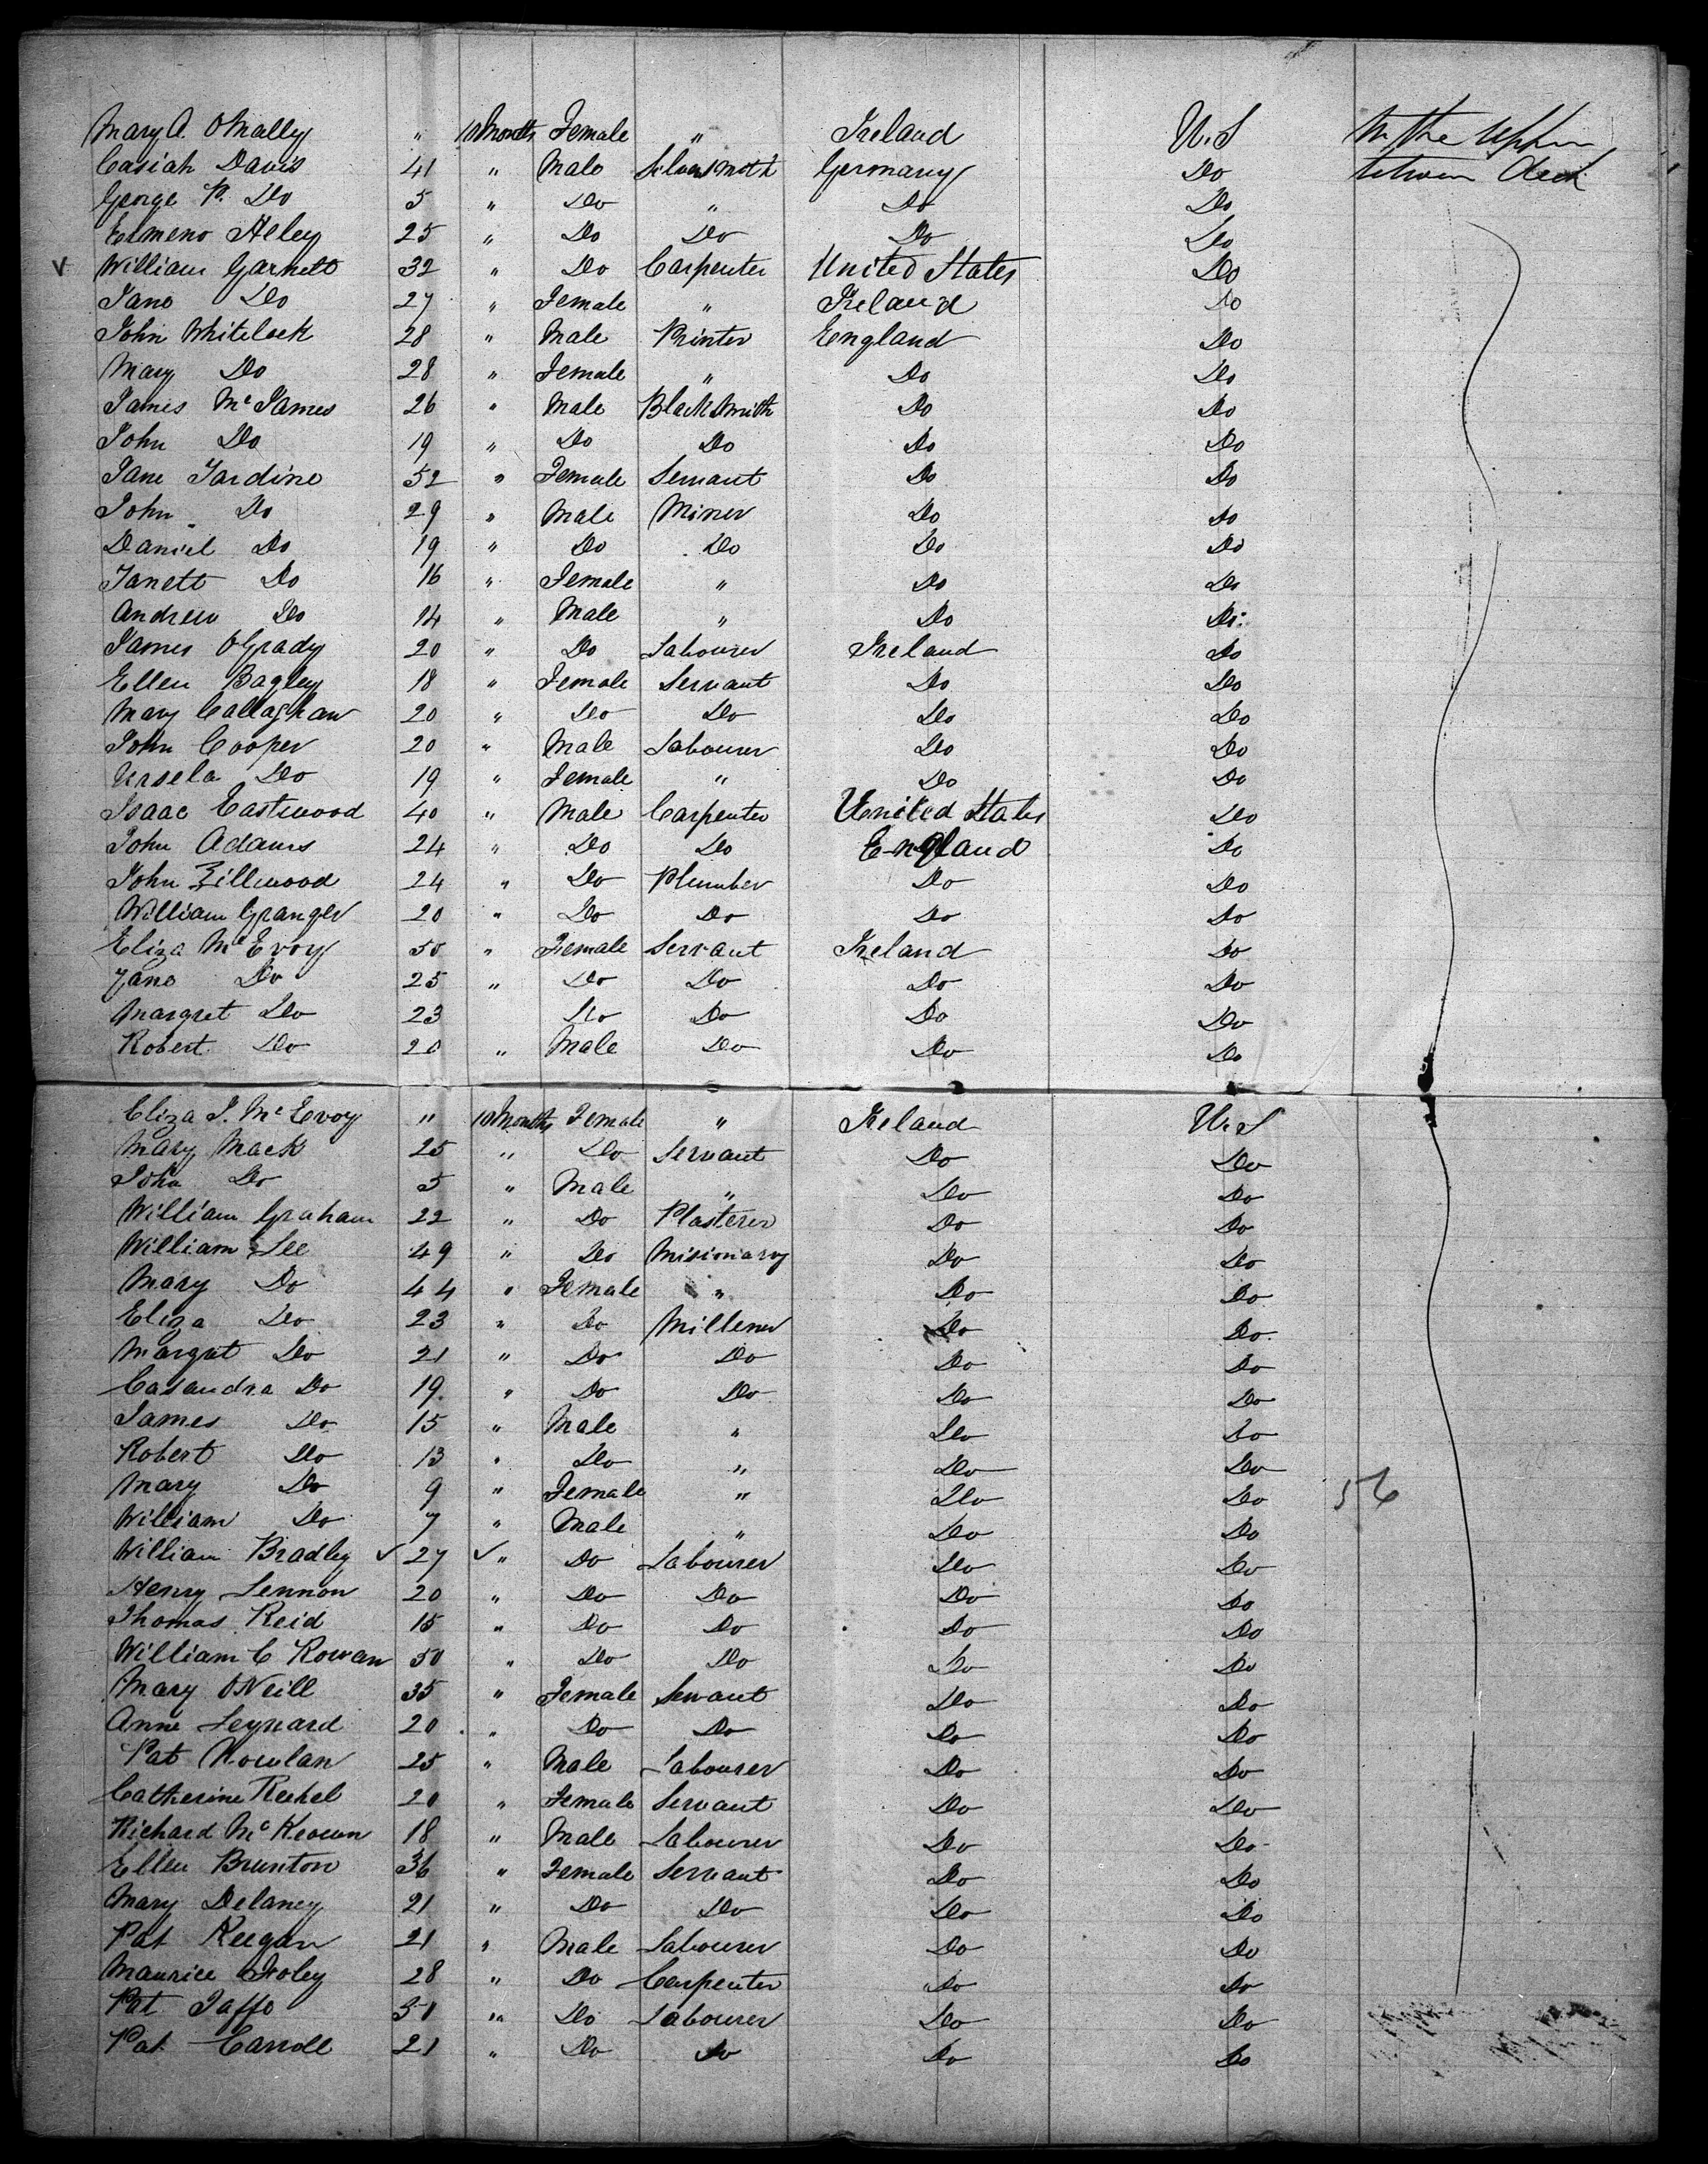 Mary A. OMally " 10 Months Female " Ireland U.S In the Upper
Casiah Davis 41 " Male Silversmith Germany Do between Deck
George P. Do 5 " Do " Do Do
Elmeno Heley 25 " Do Do Do Do
v William Garnett 32 " Do Carpenter United States Do
Jane Do 27 " Female " Ireland Do
John Whitelock 28 " Male Printer England Do
Mary Do 28 " Female " Do Do
James McJames 26 " Male Blacksmith Do Do
John Do 19 " Do Do Do Do
Jane Jardine 52 " Female Servant Do Do
John Do 29 " Male Miner Do Do
Daniel Do 19 " Do Do Do Do
Janett Do 16 " Female " Do Do
Andrew Do 14 " Male " Do Do
James OGrady 20 " Do Labourer Ireland Do
Ellen Bagley 18 " Female Servant Do Do
Mary Callaghan 20 " Do Do Do Do
John Cooper 20 " Male Labourer Do Do
Ursela Do 19 " Female " Do Do
Isaac Eastwood 40 " Male Carpenter United States Do
John Adams 24 " Do Do England Do
John Zillwood 24 " Do Plumber Do Do
William Granger 20 " Do Do Do Do
Eliza McEvoy 50 " Female Servant Ireland Do
Jane Do 25 " Do Do Do Do
Margret Do 23 Do Do Do Do
Robert Do 20 " Male Do Do Do
Eliza J. McEvoy " 10 Months Female " Ireland U.S
Mary Mack 25 " Do Servant Do Do
John Do 5 " Male " Do Do
William Graham 22 " Do Plasterer Do Do
William Lee 49 " Do Misionary Do Do
Mary Do 44 " Female " Do Do
Eliza Do 23 " Do Millener Do Do
Margret Do 21 " Do Do Do Do
Casandra Do 19 " Do Do Do Do
James Do 15 " Male " Do Do
Robert Do 13 " Do " Do Do
Mary Do 9 " Female " Do Do 56
William Do 7 " Male " Do Do
William Bradley ✓ 27 ✓ " Do Labourer Do Do
Henry Lennon 20 " Do Do Do Do
Thomas Reid 15 " Do Do Do Do
William C Rowan 50 " Do Do Do Do
Mary ONeill 35 " Female Servant Do Do
Anne Leynard 20 " Do Do Do Do
Pat Nowlan 25 " Male Labourer Do Do
Catherine Reehel 20 " Female Servant Do Do
Richard McKeown 18 " Male Labourer Do Do
Ellen Brunton 36 " Female Servant Do Do
Mary Delaney 21 " Do Do Do Do
Pat Keegan 21 " Male Labourer Do Do
Maurice Foley 28 " Do Carpenter Do Do
Pat Jaffo " Do Labourer Do Do
Pat Carroll 21 " Do Do Do Do